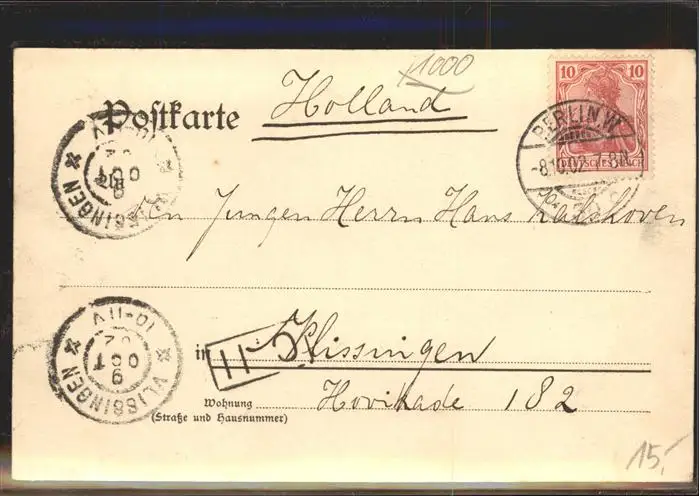 1000
Postkarte
Holland
10 10
DEUTSCHES REICH
BERLIN W
-8.10.02. 7-8N.
VLISSINGEN
10-11V
9 OCT 02
Jungen Herrn Hans Kalshoven
in Vlissingen
VLISSINGEN
10-11V
9 OCT 02
Wohnung
(Straße und Hausnummer)
182
15,-